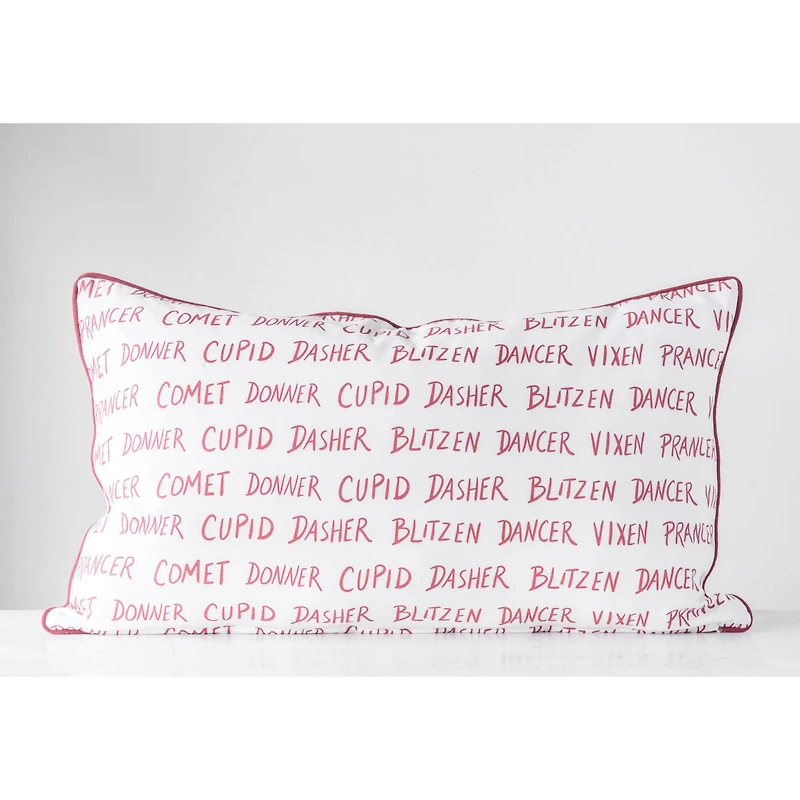 PRANCER
PRANCER COMET DONNER CUPID DASHER BLITZEN DANCER
DONNER CUPID DASHER BLITZEN DANCER VIXEN PRANCER
COMET DONNER CUPID DASHER BLITZEN DANCER
DONNER CUPID DASHER BLITZEN DANCER VIXEN PRANCER
COMET DONNER CUPID DASHER BLITZEN DANCER
DONNER CUPID DASHER BLITZEN DANCER VIXEN PRANCER
PRANCER COMET DONNER CUPID DASHER BLITZEN DANCER
DONNER CUPID DASHER BLITZEN DANCER VIXEN PRANCER
PRANCER COMET DONNER CUPID DASHER BLITZEN DANCER